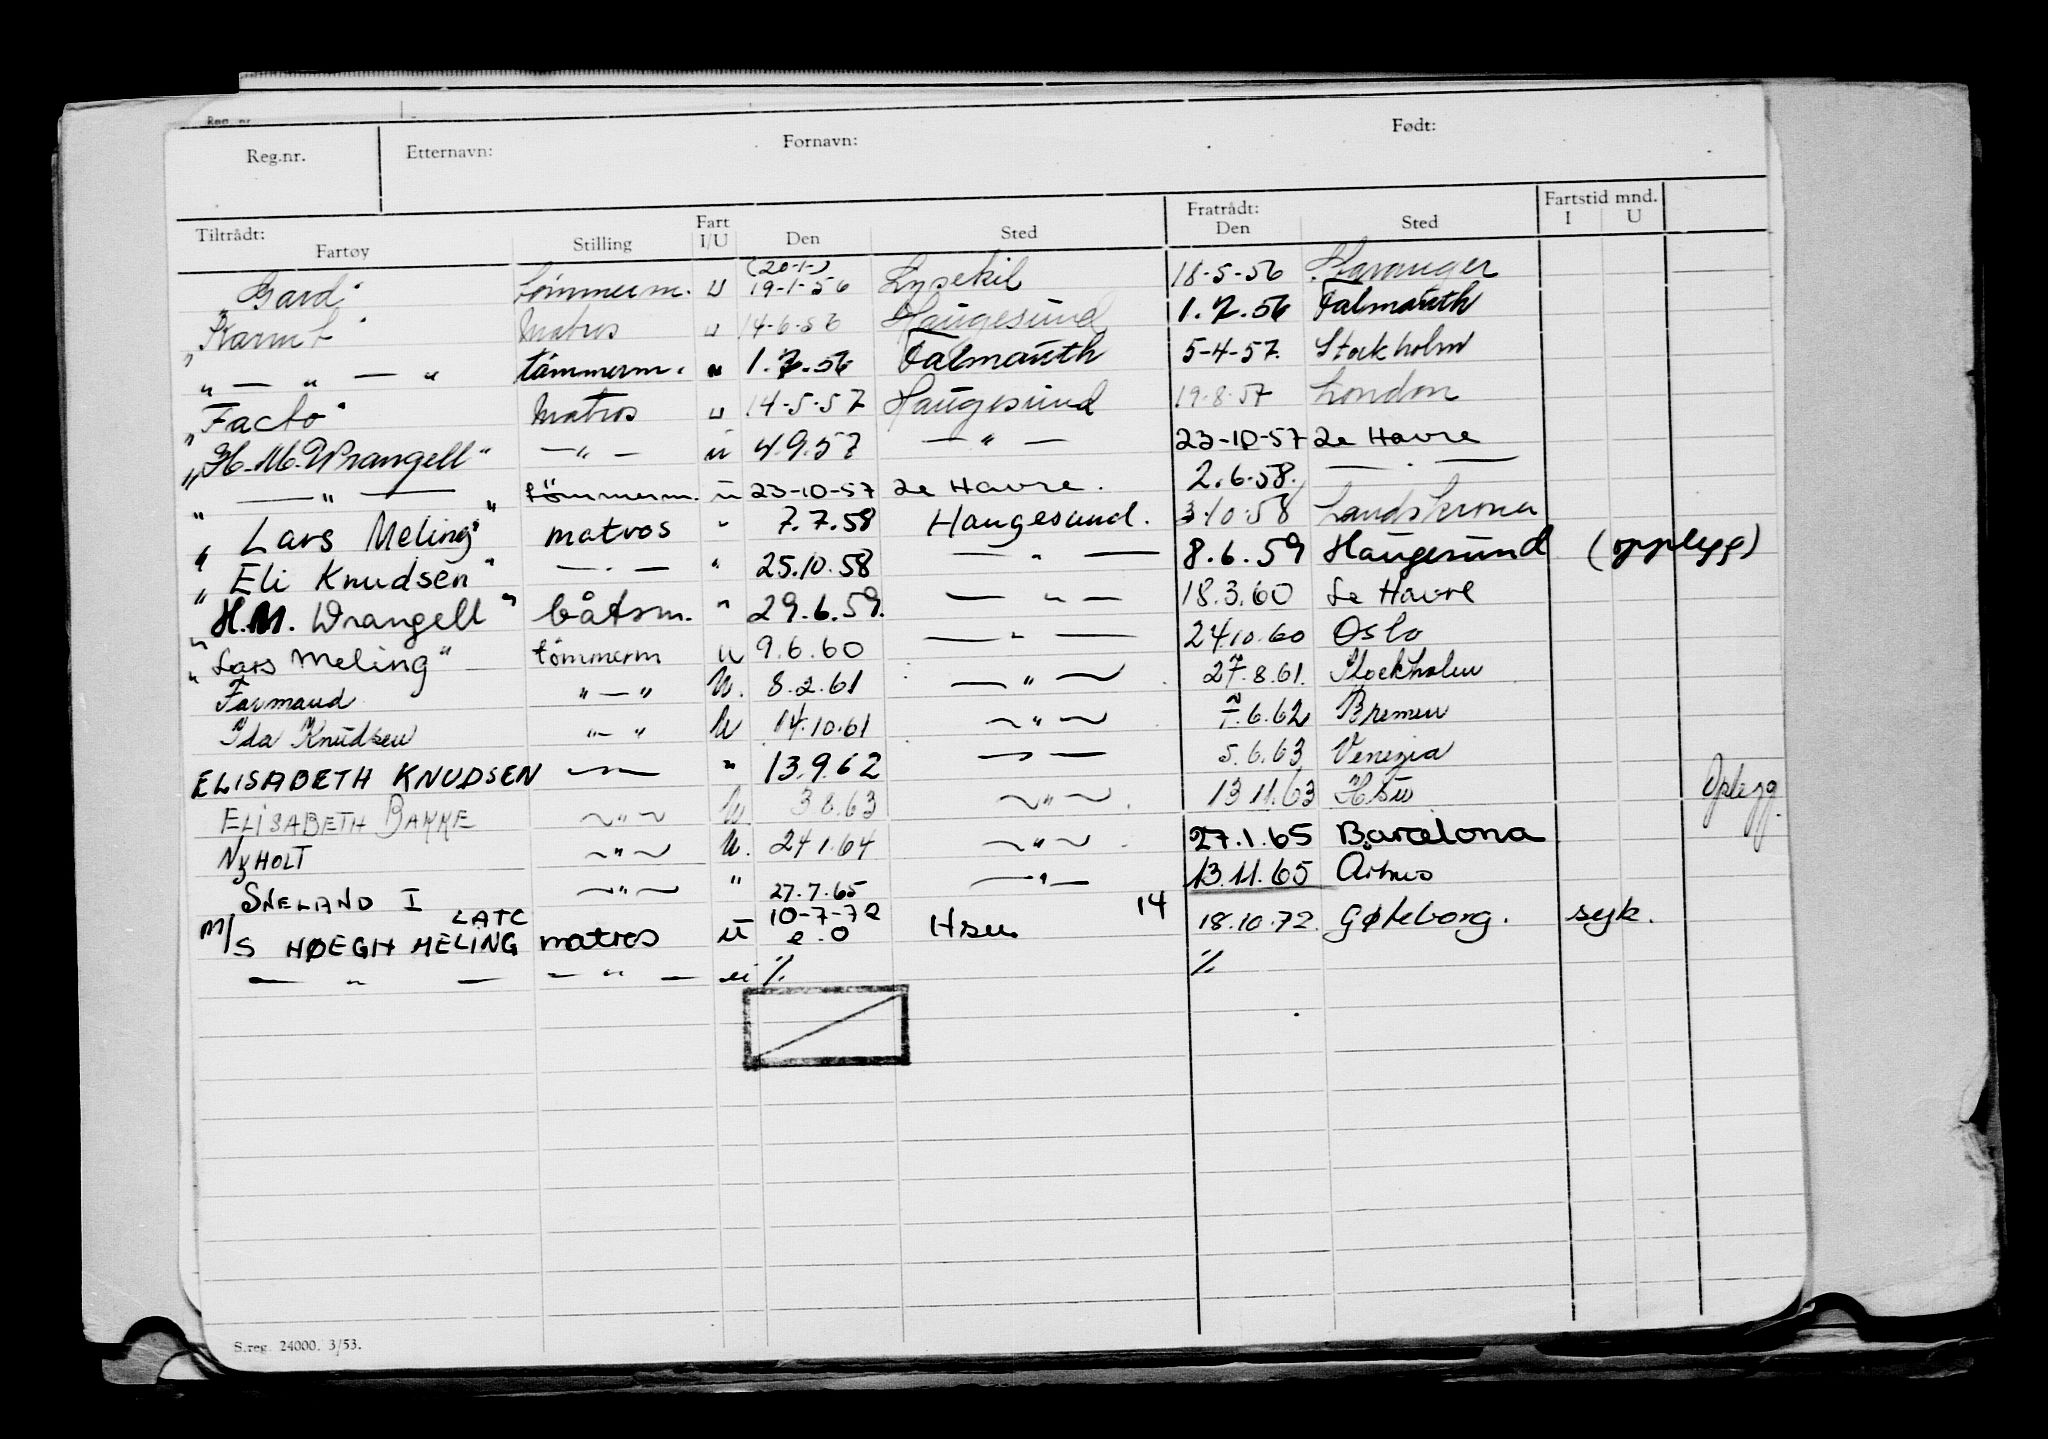 Reg. nr.
Reg.nr. Etternavn: Fornavn: Født:
Tiltrådt: Fartøy Stilling Fart I/U Den Sted Fratrådt: Den Sted Fartstid mnd. I U
„Gard" tømmerm. u (20-1-) 19-1-56 Lysekil 18-5-56 Stavanger
„Karmt" Matros u 14-6-56 Haugesund 1.7.56 Falmouth
„ — „ — " tømmerm. " 1.7.56 Falmouth 5-4-57. Stockholm
„Facto" Matros u 14-5-57 Haugesund 19.8.57 London
„H.M. Wrangell" — " — u 4.9.57 — " — 23-10-57 Le Havre
„ — " — " tömmerm. u 23-10-57 Le Havre. 2.6.58. — . —
„ Lars Meling" matros " 7.7.58 Haugesund. 3.10.58 Landskrona
„ Eli Knudsen" — . — " 25.10.58 — " — 8.6.59 Haugesund (opplegg)
„ H.M. Wrangell" båtsm. " 29.6.59. — " — 18.3.60 Le Havre
„ Lars Meling" tömmerm u 9.6.60 — " — 24.10.60 Oslo
Farmand " — " U. 8.2.61 — " — 27.8.61. Stockholm
Ida Knudsen " — " U 14.10.61 — " — 7.6.62 Bremen
ELISABETH KNUDSEN — " — " 13.9.62 — " — 5.6.63 Venezia
ELISABETH BAKKE — " — U. 3.8.63 — " — . 13.11.63 Hsu Oplegg.
NyHOLT — " — U. 24.1.64 — " — . 27.1.65 Barcelona
SNELAND I — " — " 27.7.65 — " — 13.11.65 Århus
M/S HØEGH MELING LATC matros u 10-7-72 e.o Hsu 14 18.10.72. Gøteborg. syk.
— " — — " — u % %
S.reg. 24000. 3/53.